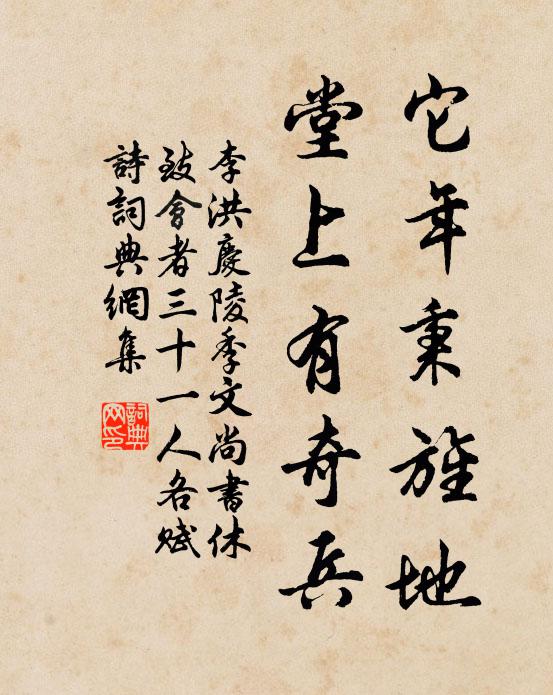 它年秉旄地
堂上有奇兵
李洪慶陵季文尚書休
致會者三十一人各賦
詩詞典網集
詞典网印